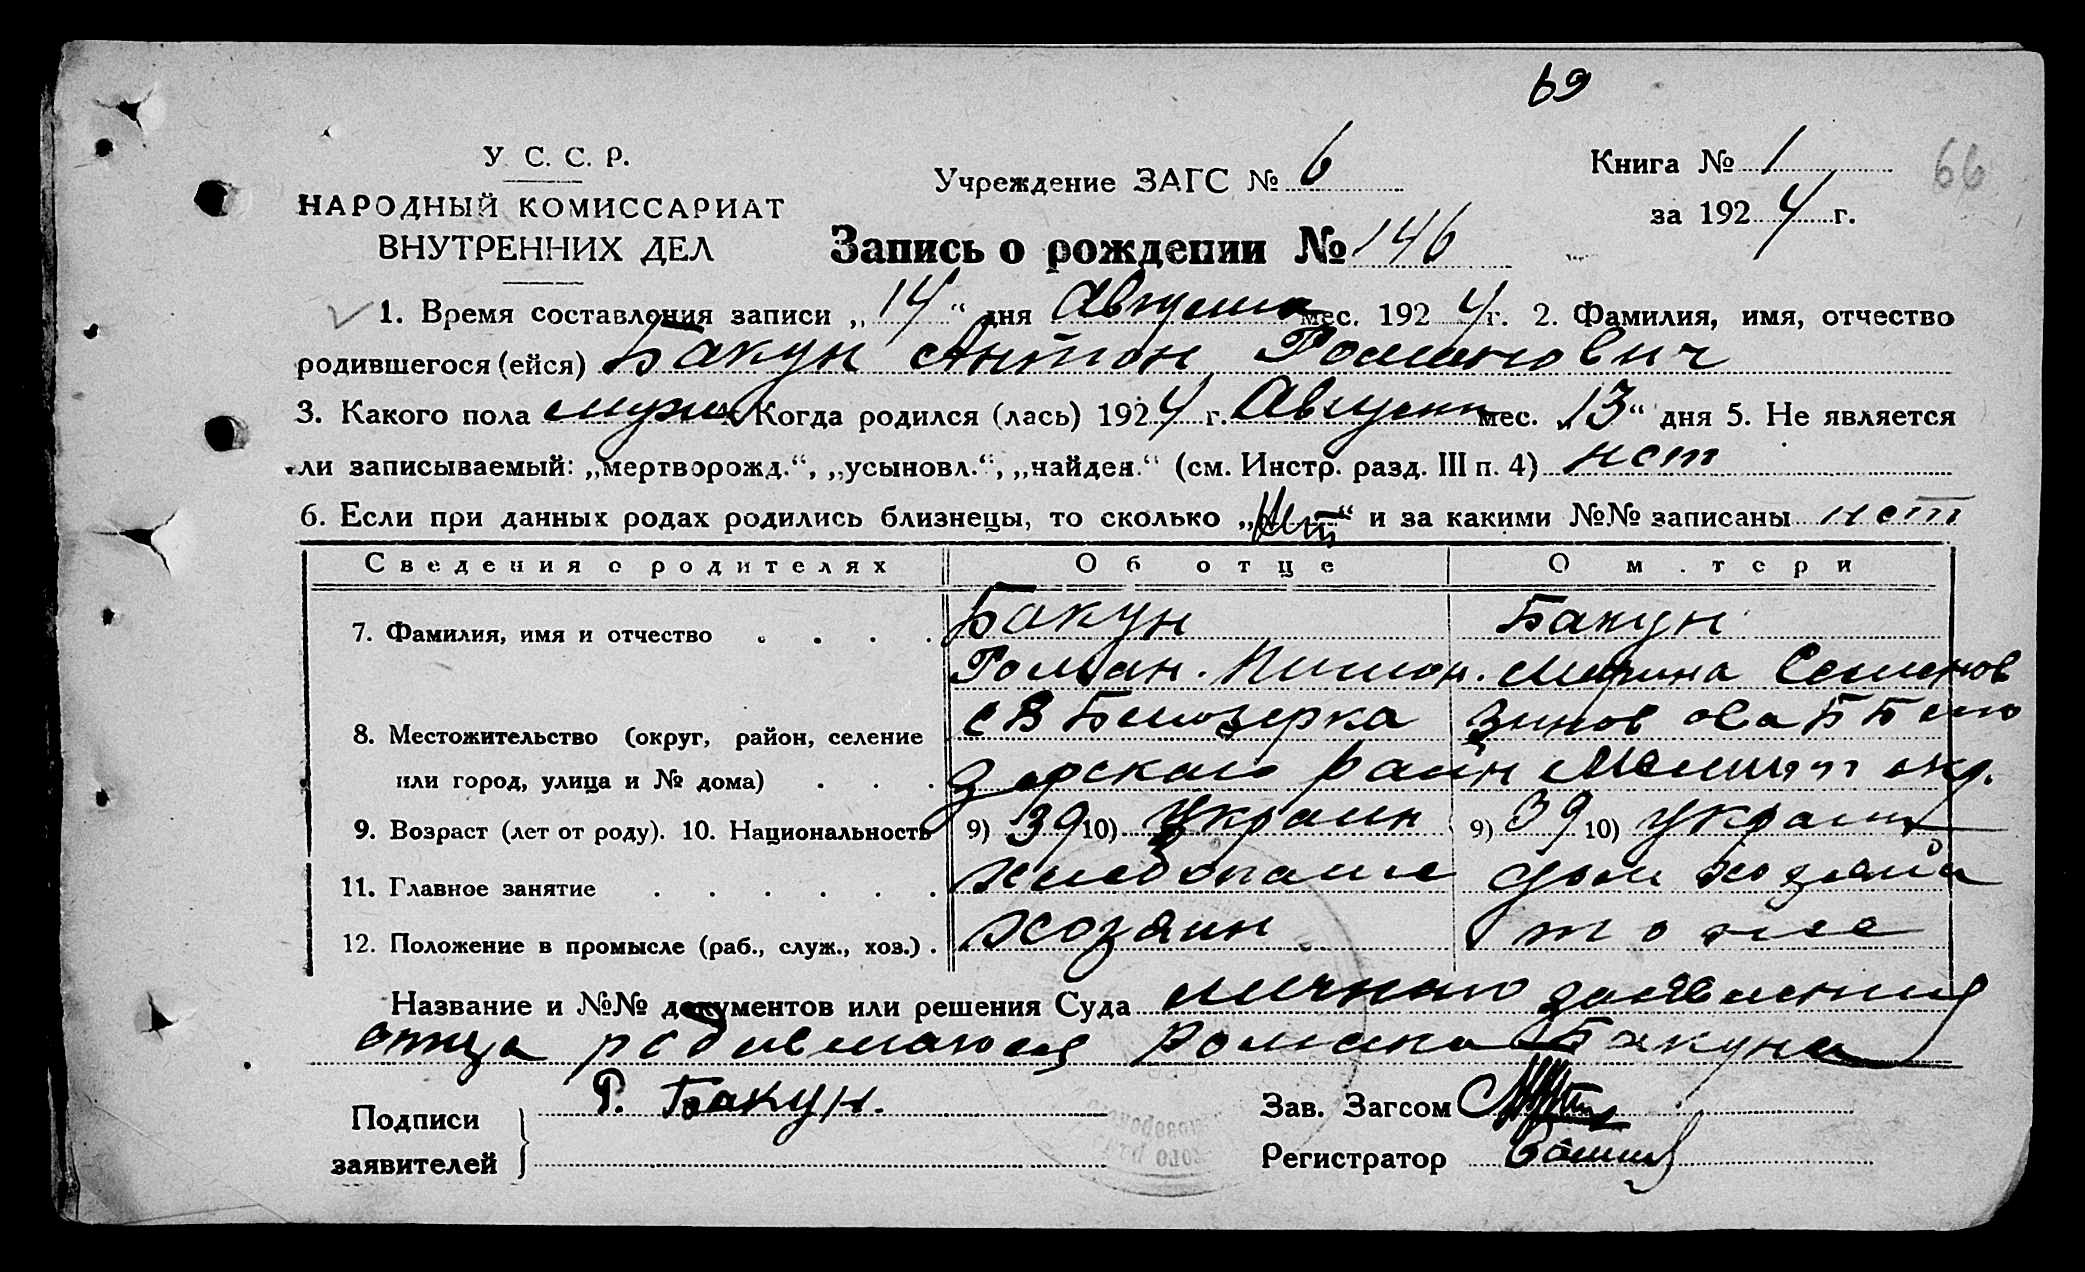 69
У. С. С. Р.
НАРОДНЫЙ КОМИССАРИАТ
ВНУТРЕННИХ ДЕЛ
Учреждение ЗАГС № 6
Книга № 1
66
за 1924 г.
Запись о рождении № 146
1. Время составления записи „14“ дня Августа мес. 1924 г. 2. Фамилия, имя, отчество
родившегося (ейся) Бакун Антон Романович
3. Какого пола мужс Когда родился (лась) 1924 г. Августа мес. „13“ дня 5. Не является
ли записываемый: „мертворожд.“, „усыновл.“, „найден.“ (см. Инстр. разд. III п. 4) нет
6. Если при данных родах родились близнецы, то сколько „нет“ и за какими №№ записаны нет
Сведения о родителях Об отце О м.тери
7. Фамилия, имя и отчество . . . . Бакун Бакун
Роман. Семенов
8. Местожительство (округ, район, селение с В Белозерка
или город, улица и № дома) . . . зерского район Мелитоп окр.
9. Возраст (лет от роду). 10. Национальность 9) 39 10) Украин 9) 39 10) украин
11. Главное занятие . . . . . . хлебопаше дом хозяйка
12. Положение в промысле (раб., служ., хоз.) . хозяин то же
Название и №№ документов или решения Суда лично заявления
отца родившагося Романа Бакуна
Подписи
заявителей
Р. Бакун.
Зав. Загсом
Регистратор